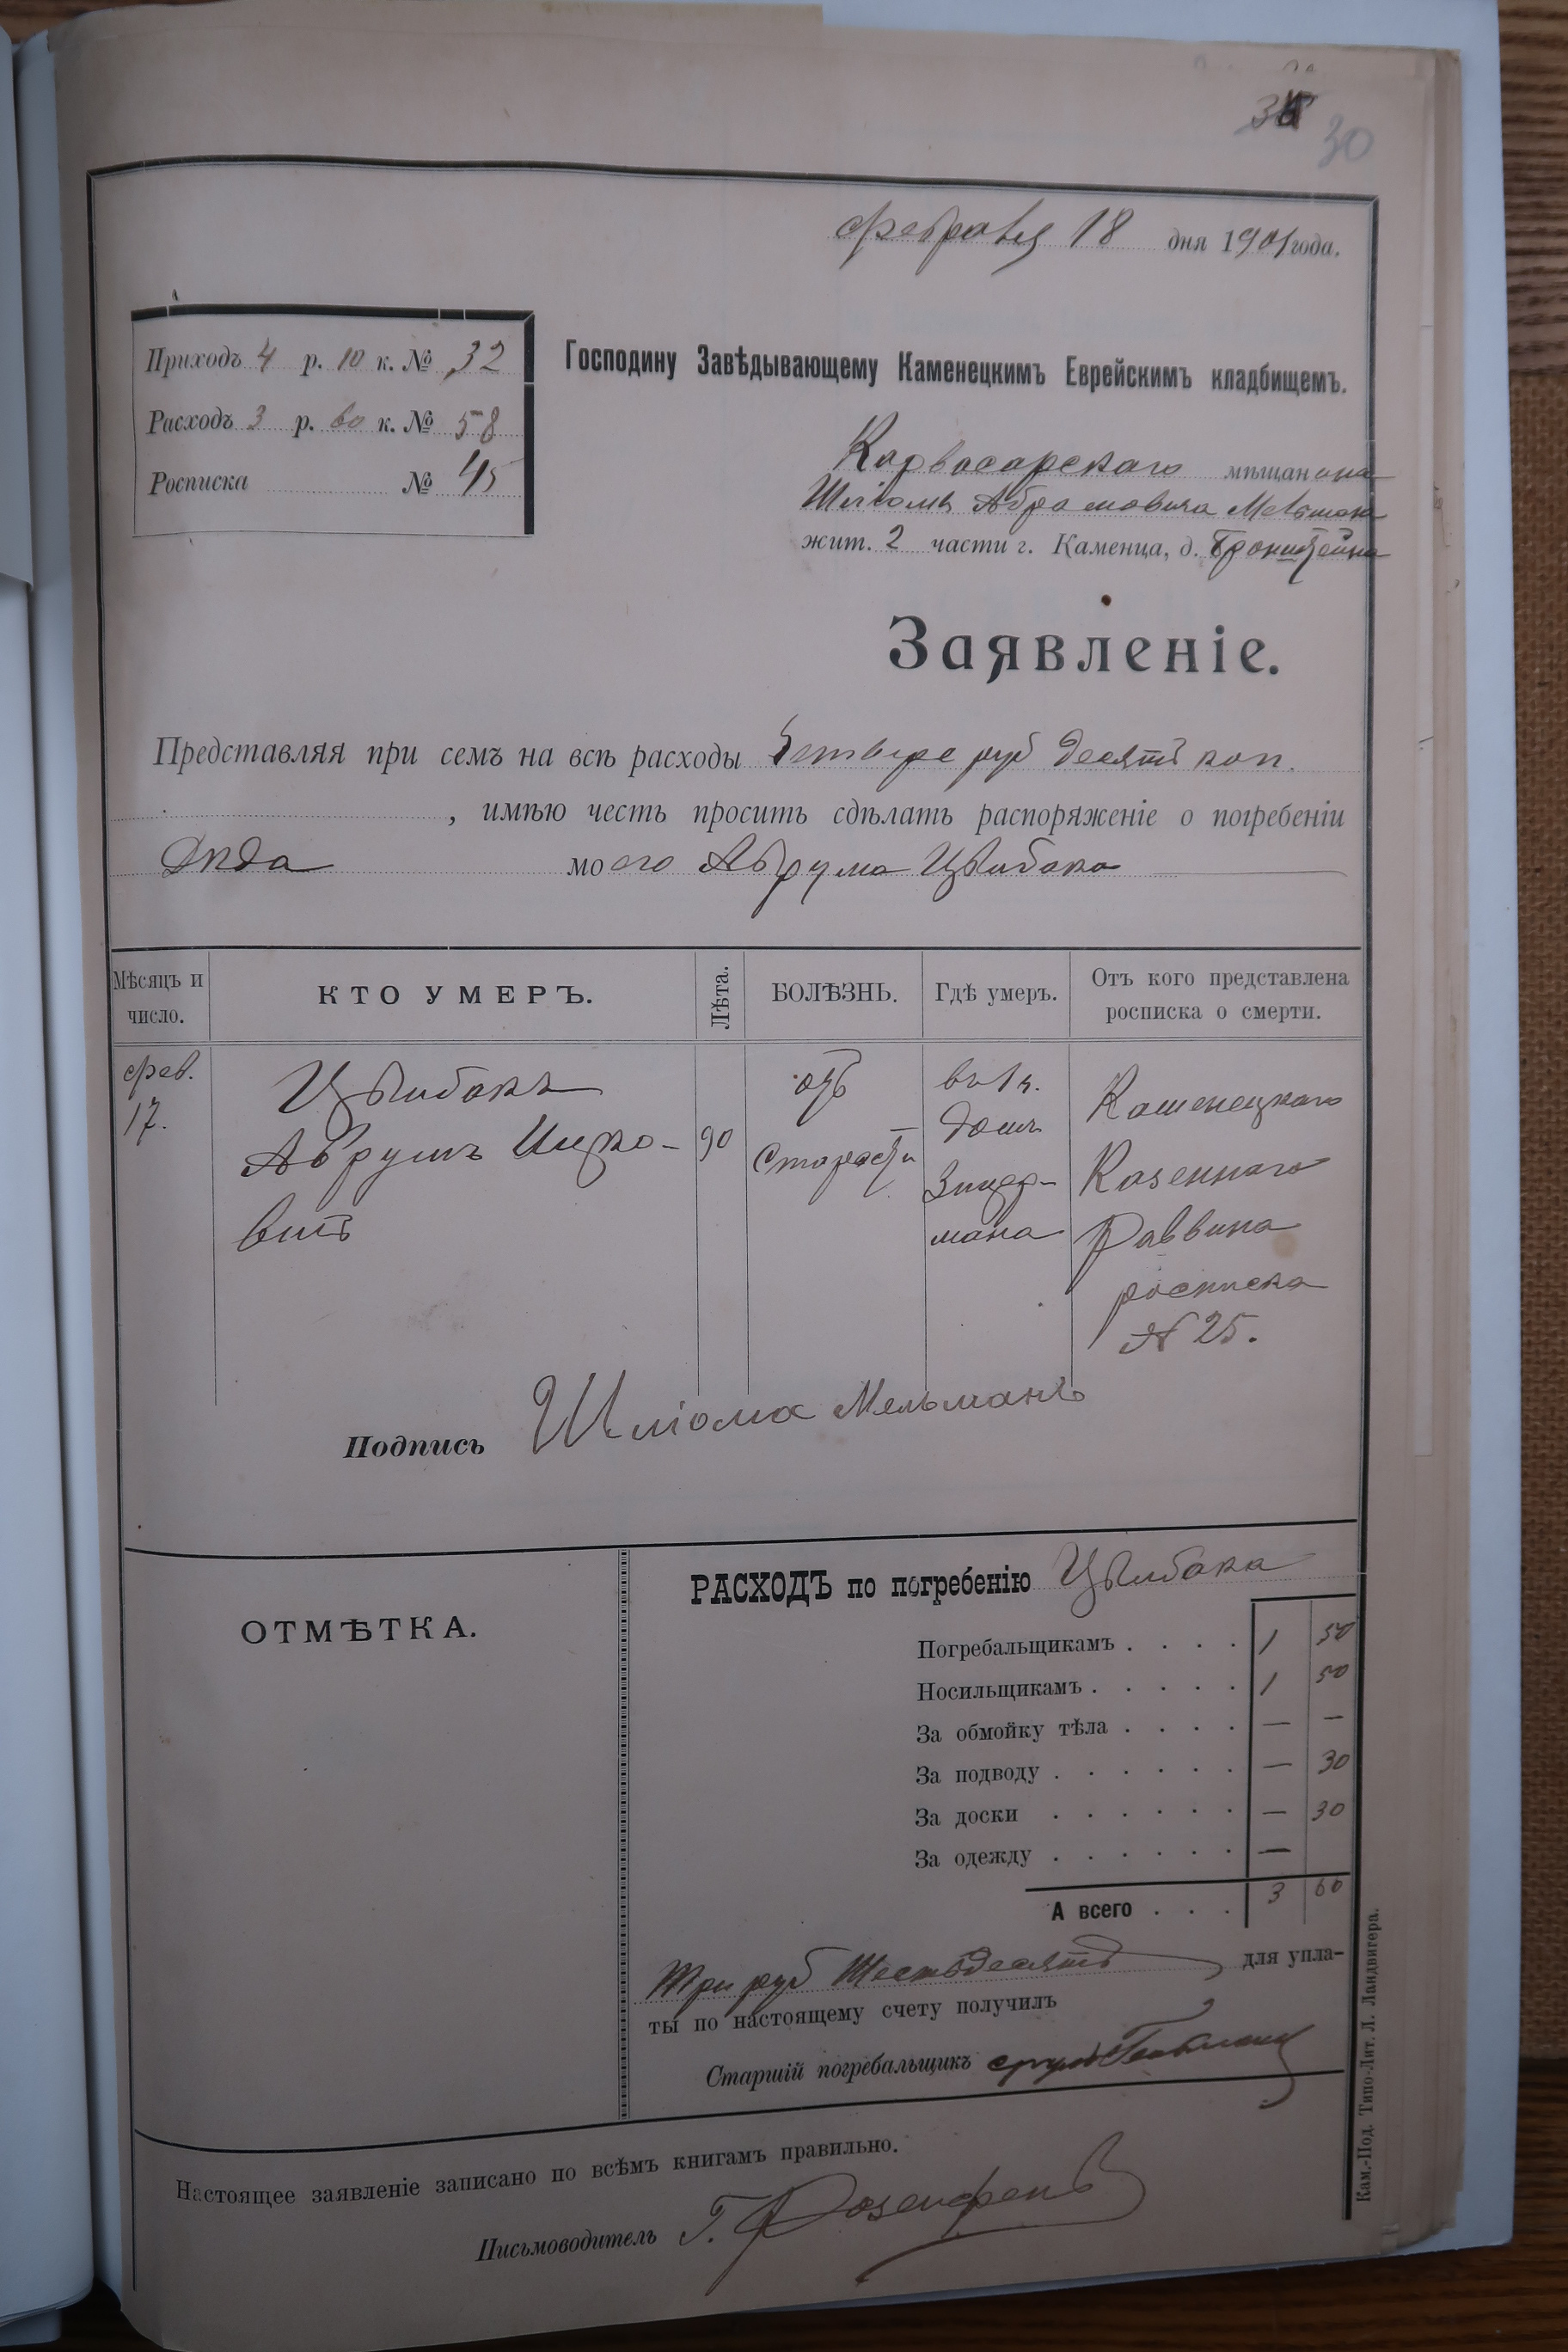 30
февраля 18 дня 1901 года.
Приходъ 4 р. 10 к. № 32
Расходъ 3 р. 60 к. № 58
Росписка № 45
Господину Завѣдывающему Каменецкимъ Еврейскимъ кладбищемъ.
Карвасарскаго мѣщанина
Шліомы Абрамовича Мельмана
жит. 2 части г. Каменца, д. Бронштейна
Заявленіе.
Представляя при семъ на всѣ расходы Четыре руб десять коп.
, имѣю честь просить сдѣлать распоряженіе о погребеніи
Дѣда моего Аврума Цвибака
Мѣсяцъ и число.
КТО УМЕРЪ.
Лѣта.
БОЛѢЗНЬ.
Гдѣ умеръ.
Отъ кого представлена росписка о смерти.
фев. 17.
Цвибакъ
Аврумъ Ицко-
вичъ
90
отъ
старости
въ 1 ч.
домъ
мана
Каменецкаго
Казеннаго
Раввина
росписка
№ 25.
Подпись Шліома Мельманъ
ОТМѢТКА.
РАСХОДЪ по погребенію Цвибака
Погребальщикамъ . . . . 1 50
Носильщикамъ . . . . . 1 50
За обмойку тѣла . . . . — —
За подводу . . . . . . — 30
За доски . . . . . . — 30
За одежду . . . . . . —
А всего . . . 3 60
Три руб Шестьдесять для упла-
ты по настоящему счету получилъ
Старшій погребальщикъ
Настоящее заявленіе записано по всѣмъ книгамъ правильно.
Письмоводитель Г. Розенфельд
Кам.-Под. Типо-Лит. Л. Ландвигера.